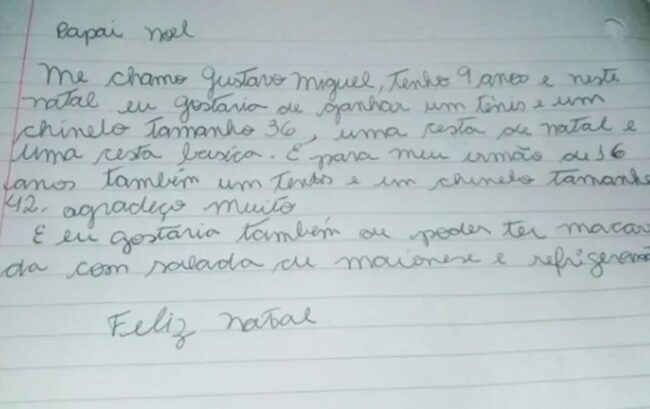 Papai noel
Me chamo Gustavo Miguel, tenho 9 anos e neste
natal eu gostaria de ganhar um tênis e um
chinelo tamanho 36, uma cesta de natal e
uma cesta basica. E para meu irmão de 16
anos também um tenis e um chinelo tamanho
42. agradeço muito
E eu gostaria também de poder ter macar
da com salada de maionese e refrigeran
Feliz natal